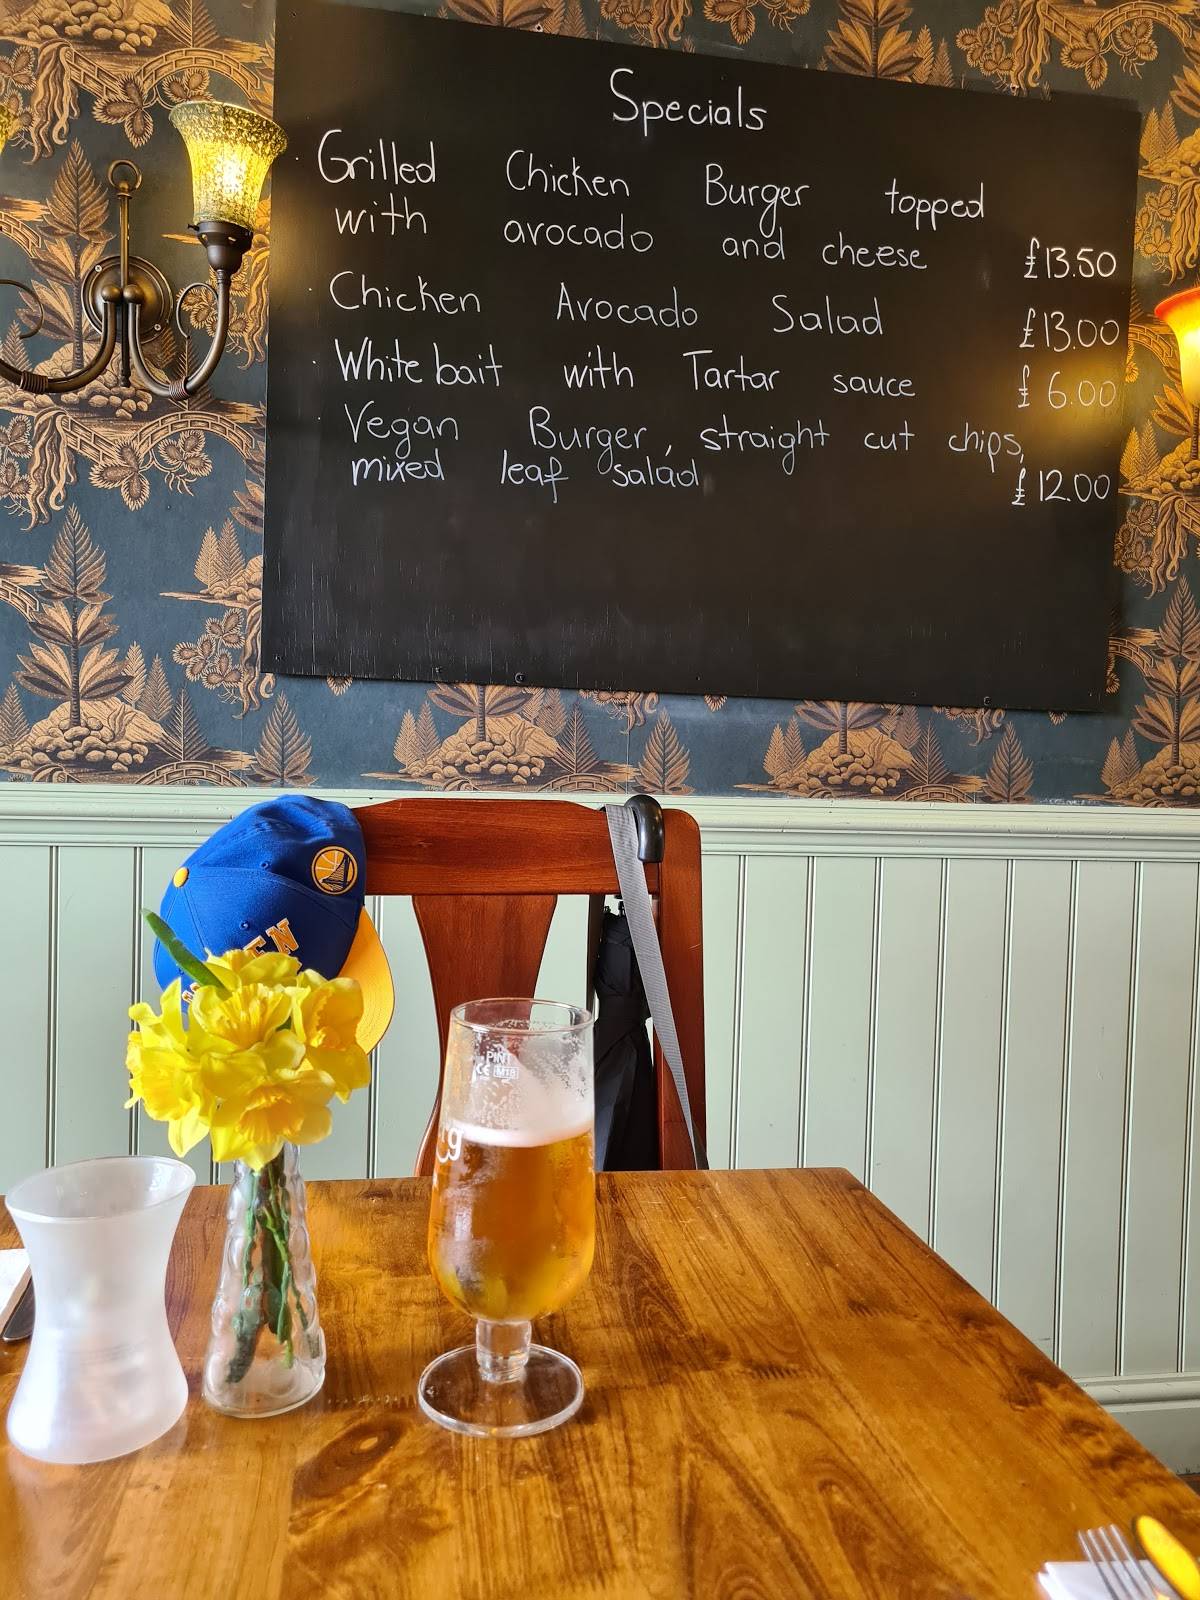 Specials
· Grilled Chicken Burger topped
with avocado and cheese £13.50
· Chicken Avocado Salad £13.00
· Whitebait with Tartar sauce £6.00
· Vegan Burger, straight cut chips,
mixed leaf salad £12.00
PINT
CE M18